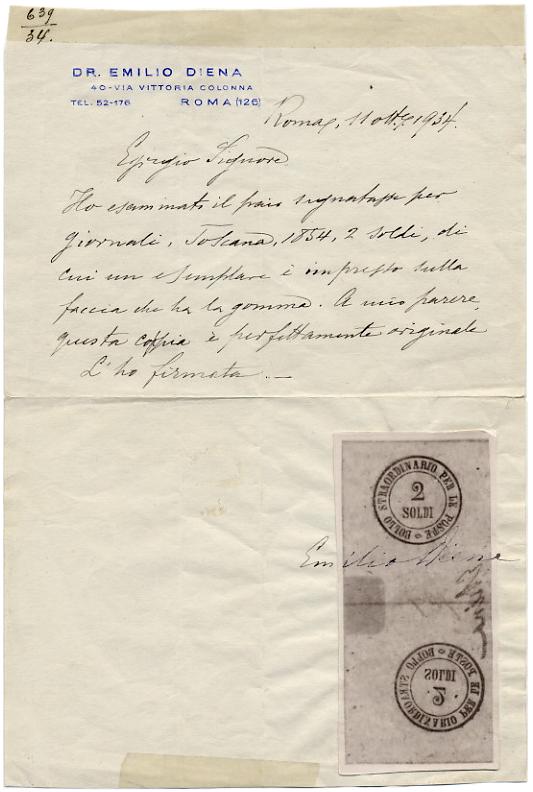 639
34.
DR. EMILIO DIENA
40-VIA VITTORIA COLONNA
TEL. 52-176 ROMA (126)
Roma, 11 ott. 1934.
Egregio Signore
Ho esaminato il paio segnatasse per
giornali, Toscana, 1854, 2 soldi, di
cui un esemplare è impresso sulla
faccia che ha la gomma. A mio parere,
questa coppia è perfettamente originale
L'ho firmata. —
BOLLO STRAORDINARIO PER LE POSTE
2
SOLDI
Emilio Diena
BOLLO STRAORDINARIO PER LE POSTE
SOLDI
2